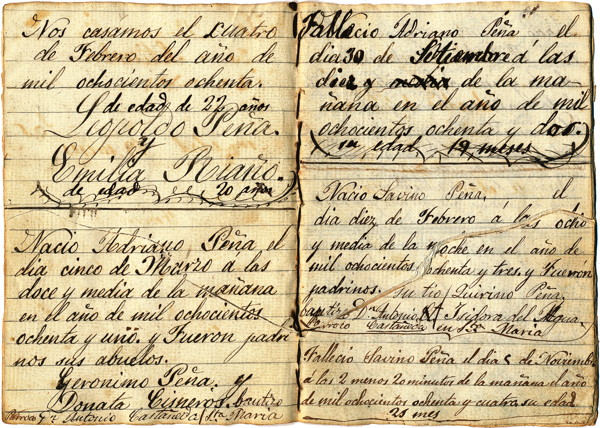 Nos casámos el cuatro
de Febrero del año de
mil ochocientos ochenta.
de edad de 22 años
Leopoldo Peña.
y
Emilia Riaño.
de edad 20 años
Nacio Adriano Peña el
dia cinco de Marzo a las
doce y media de la mañana
en el año de mil ochocientos
ochenta y uno, y Fueron padri
nos sus abuelos.
Geronimo Peña. y
Donata Cisneros. bautizo
Parroco Antonio Castañeda Sta Maria
Fallecio Adriano Peña el
dia 30 de Setiembre á las
diez y media de la ma
ñana en el año de mil
ochocientos ochenta y dos.
su edad 19 meses
Nacio Savino Peña, el
dia diez de Febrero á las ocho
y media de la noche en el año de
mil ochocientos ochenta y tres y Fuerón
padrinos. Su tio Quirino Peña
bautizo Dn Antonio, Y Isigora del Agua
Parroco Castañeda en Sta Maria
Fallecio Savino Peña el dia 5 de Noviembre
á las 2 menos 20 minutos de la mañana el año
de mil ochocientos ochenta y cuatro su edad
20 mes